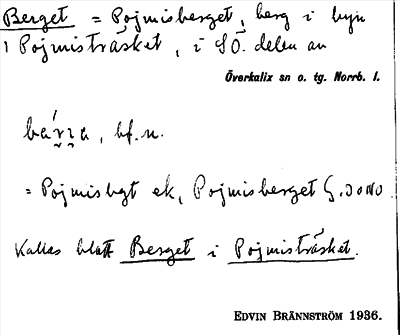 Berget = Pojmisberget, berg i byn
1 Pojmisträsket, i SÖ. delen av
Överkalix sn o. tg. Norrb. l.
bf. n.
= Pojmisbgt ek, Pojmisberget
Kallas blott Berget i Pojmisträsket.
EDVIN BRÄNNSTRÖM 1936.